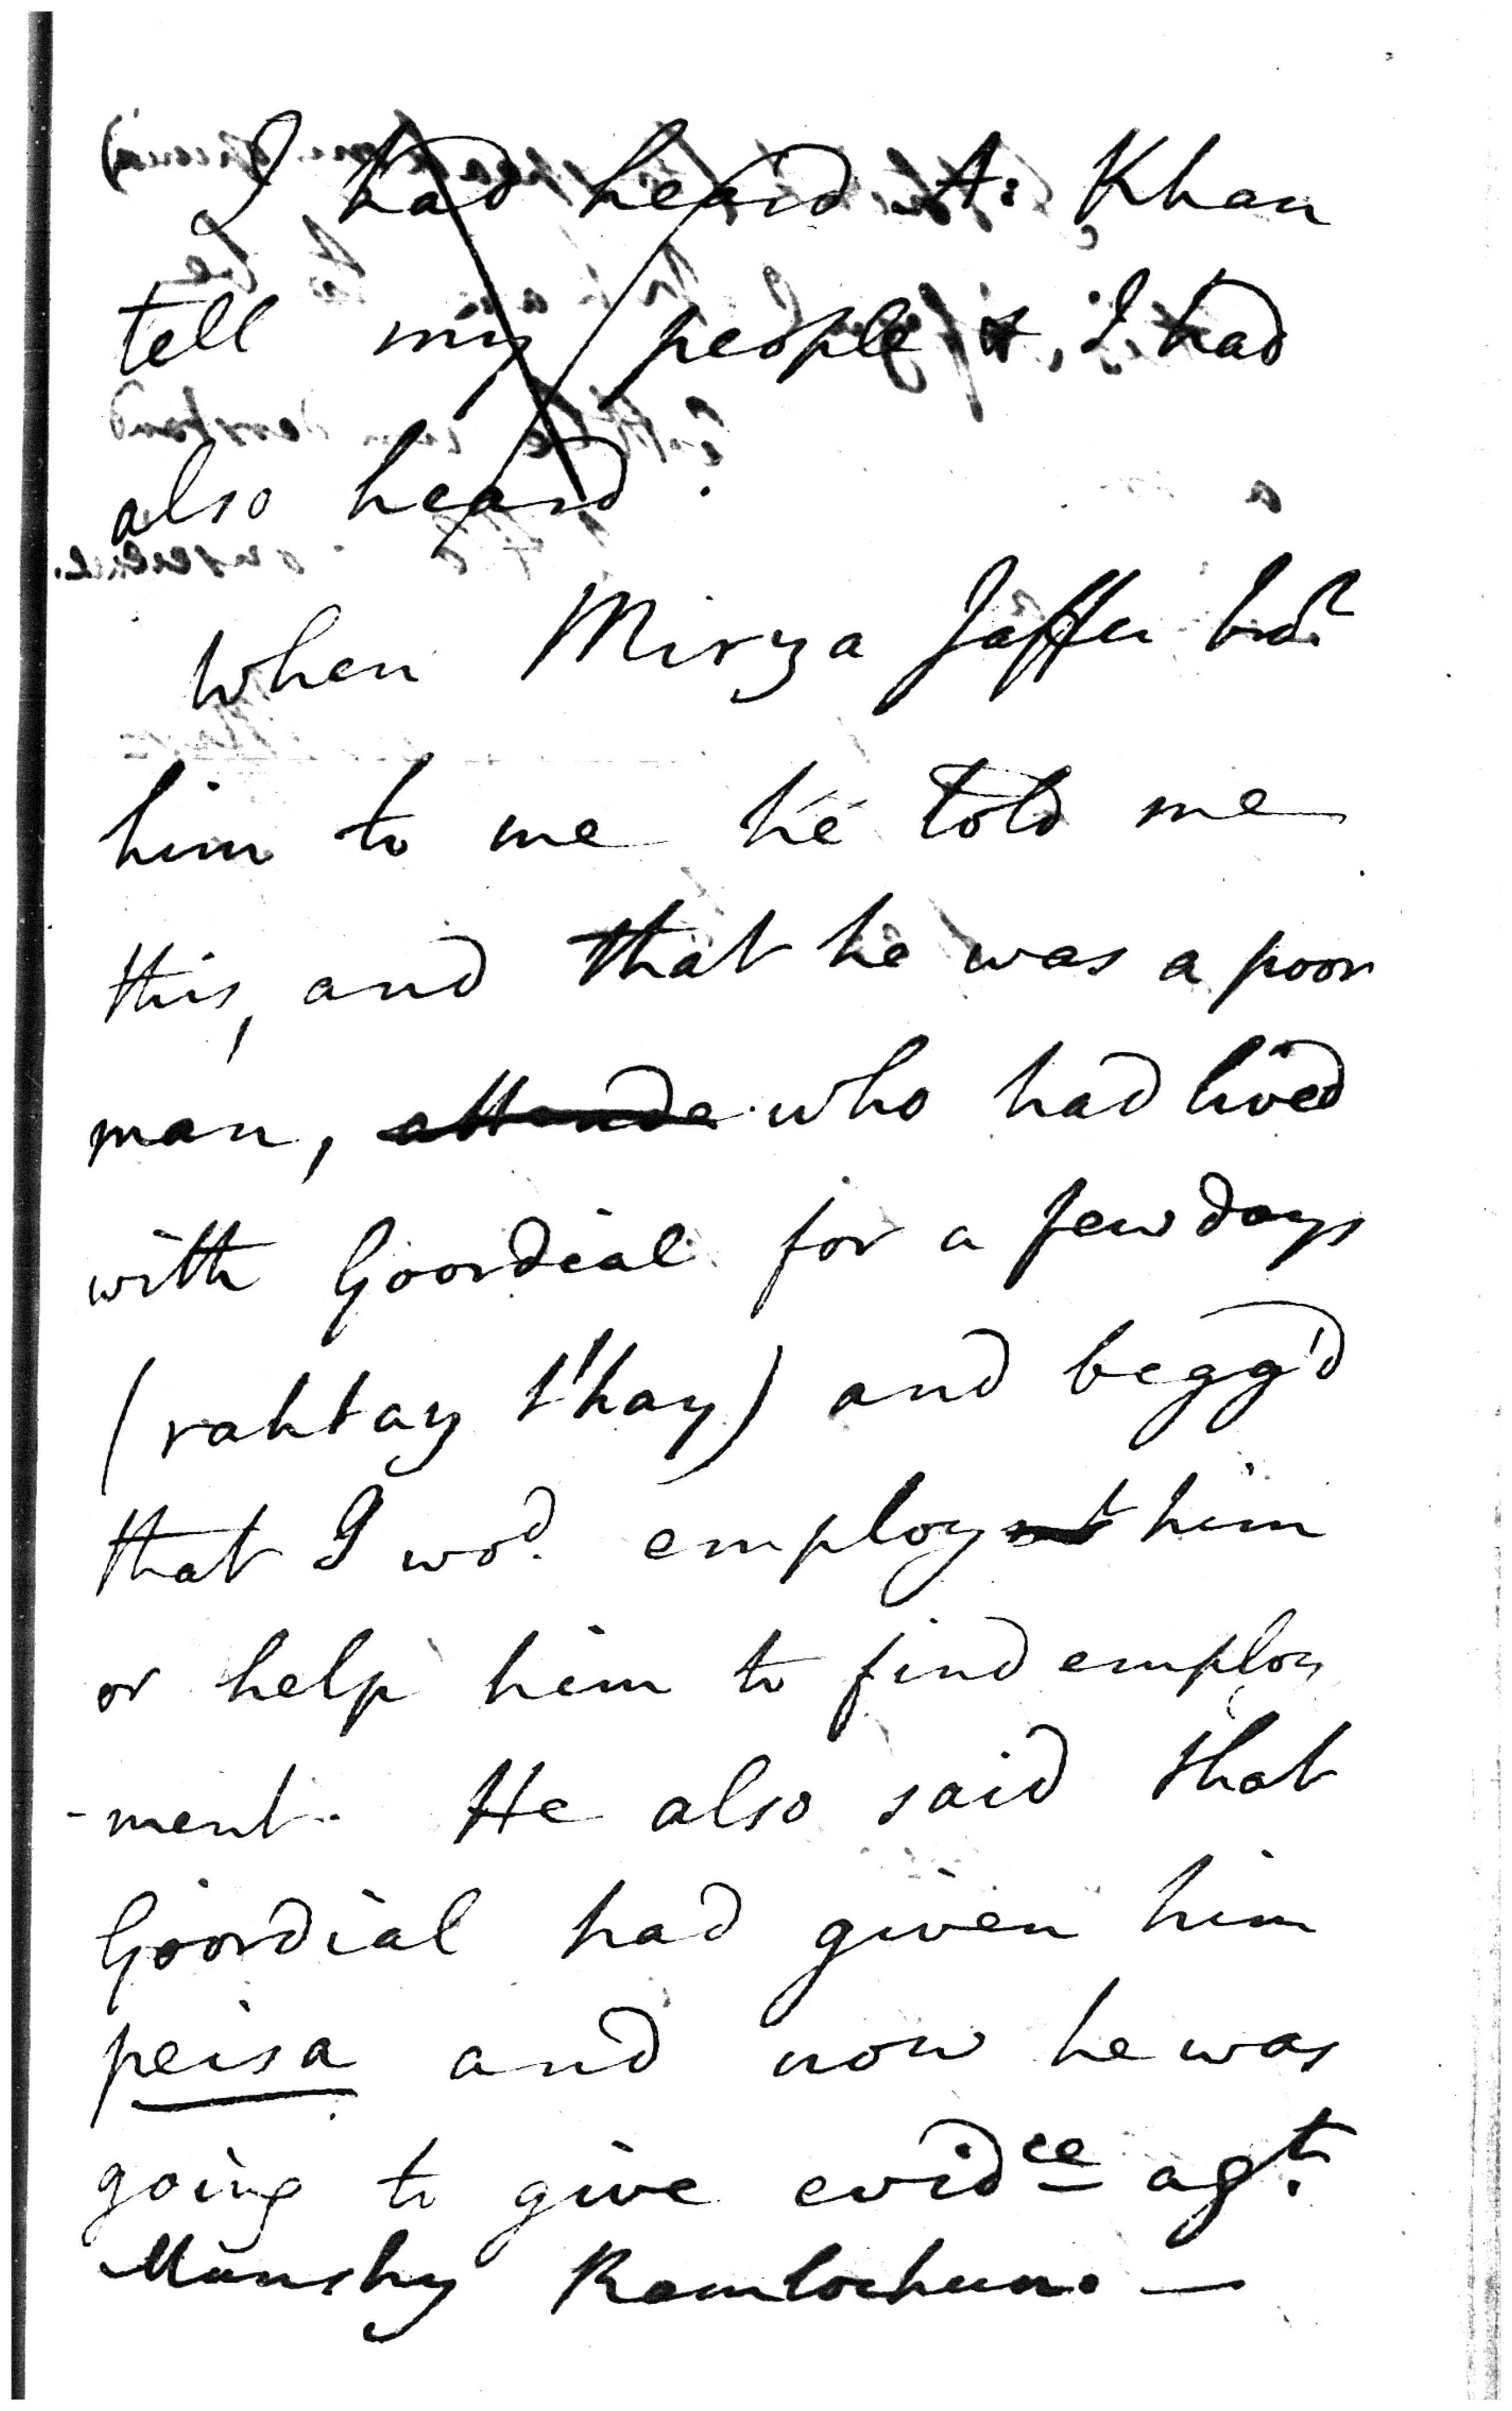 I had heard A: Khan
tell my people &, I had
also heard.
When Mirza Jaffer bro.t
him to me he told me
this, and that he was a poor
man, attende who had lived
with Goordial for a few days
(rahtay t'hay) and begg'd
that I wod. employ him
or help him to find employ
-ment. He also said that
Goordial had given him
peisa and now he was
going to give evidce agt.
Munshy Ramlochun. —